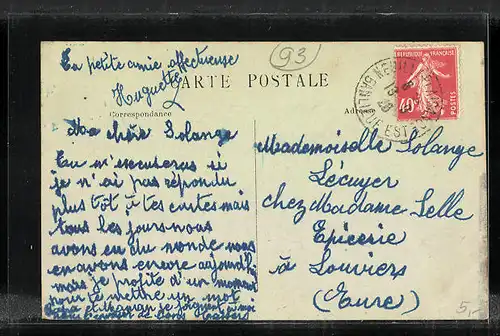 Ta petite amie affectueuse
Huguette
93
CARTE POSTALE
Correspondance
Adresse
REPUBLIQUE FRANÇAISE
40c
POSTES
Ma chère Solange
Tu m'excuseras si
je n'ai pas répondu
plus tôt à tes cartes mais
tous les jours nous
avons eu du monde nous
en avons encore aujourd'hui
mais je profite d'un moment
pour te mettre un mot
Papa et Maman se joignent à moi
pour t'envoyer de bons baisers
Mademoiselle Solange
Lécuyer
chez Madame Selle
Epicerie
à Louviers
(Eure)
5,-